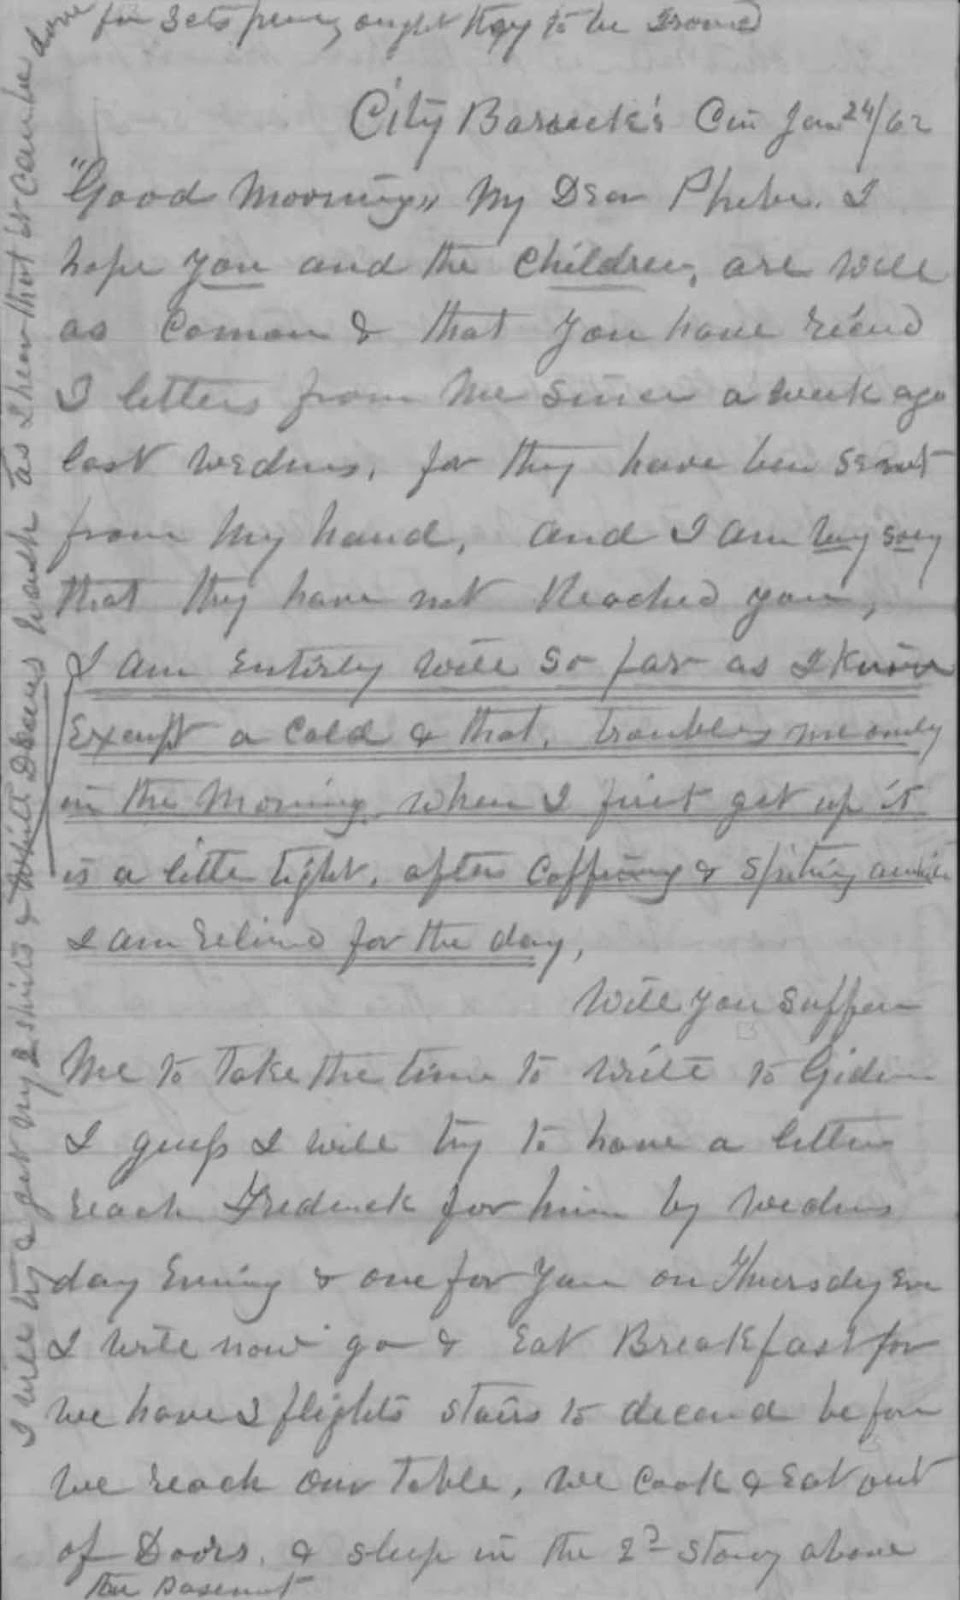 City Barrack's Cin Jan 24/62
"Good Morning" My Dear Phebe. I
hope you and the Children, are well
as Comon & that you have recievd
2 letters from me since a week ago
last wedns, for they have ben sent
from my hand, and I am very sory
that they have not Reached you,
I am Entirly well so far as I know
Except a Cold & that, troubles me only
in the Morning when I first get up it
is a little tight, after Coffing & Spiting awhile
I am Relievd for the day,
Will you suffer
Me to Take the time to write to Gideon
I guess I will try to have a letter
reach Fredrick for him by wednes
day Evning & one for You on Thursday Eve
I will now go & Eat Breakfast for
we have 2 flights stairs to decend before
we reach our Table, we Cook & Eat out
of Doors, & sleep in the 2d story above
the Basement
I will try & get my 2 shirts & White Draws washt as I hear that it can be done
for 3 cts piece, ought they to be Irond